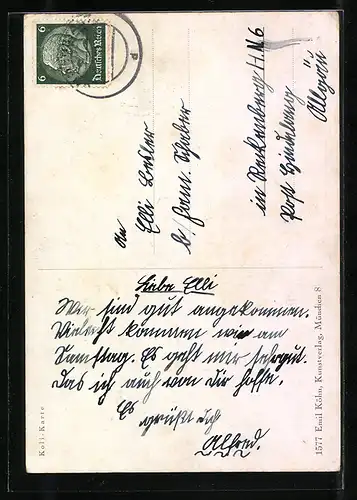 6 Deutsches Reich 6
An
Elli
b/ Fam. Schaber
in Reckenberg H N 6
Post Hindelang
Allgäu
Liebe Elli
Wir sind gut angekommen.
Vieleicht kommen wir am
Samstag. Es geht mir sehr gut.
Das ich auch von dir hoffe.
Es
grüßt dich
Alfred.
Koli-Karte
1577 Emil Köhn, Kunstverlag, München 8